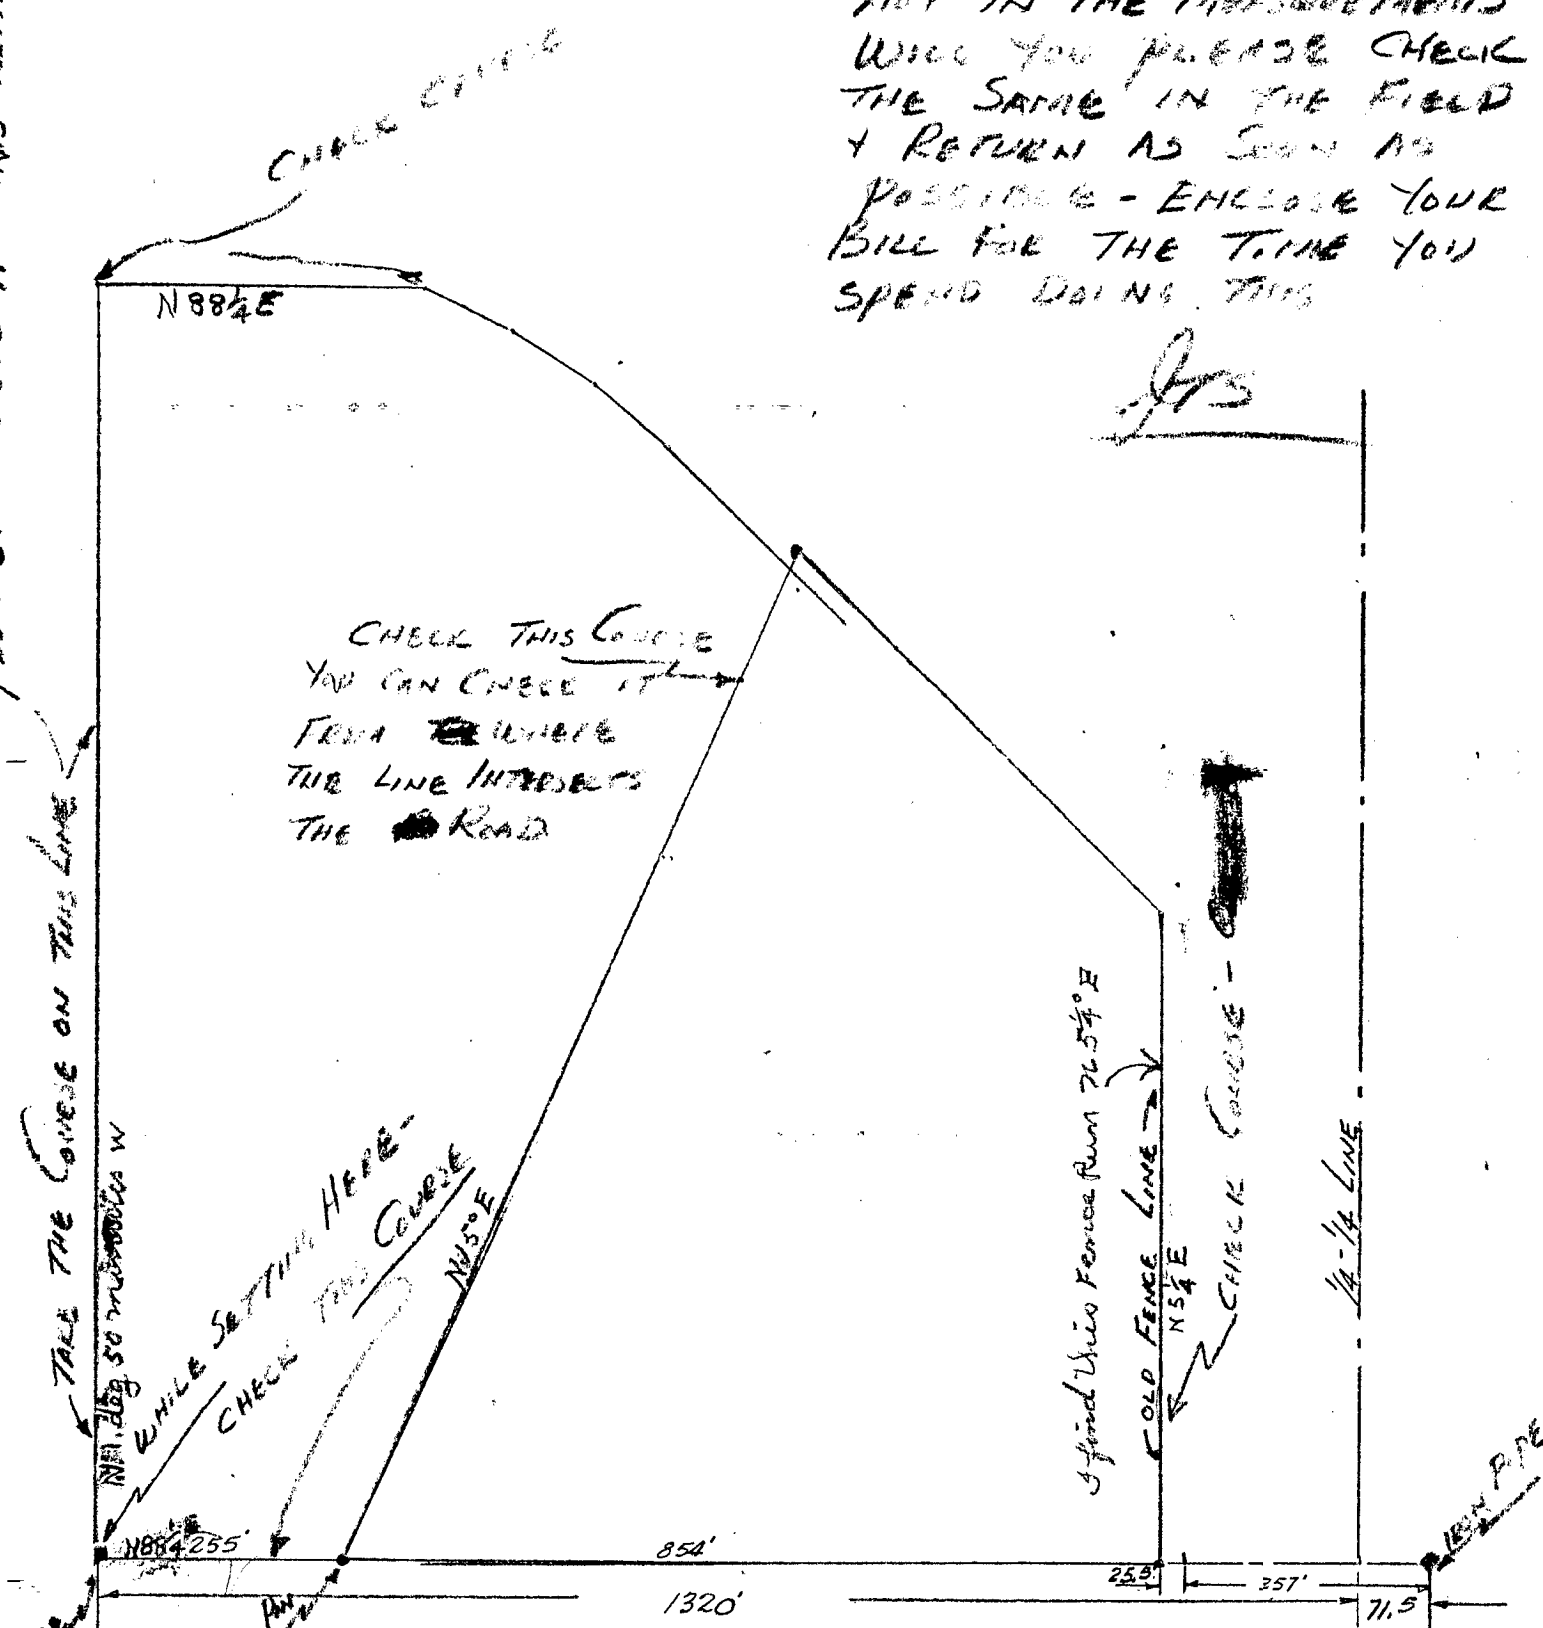 NOT IN THE MEASUREMENTS
WILL YOU PLEASE CHECK
THE SAME IN THE FIELD
& RETURN AS SOON AS
POSSIBLE - ENCLOSE YOUR
BILL FOR THE TIME YOU
SPEND DOING THIS
CHECK COURSE
N 88¼ E
CHECK THIS COURSE
YOU CAN CHECK IT
FROM WHERE
THE LINE INTERSECTS
THE ROAD
TAKE THE COURSE ON THIS LINE
deg 50 minutes W
WHILE SETTING HERE -
CHECK THIS COURSE
5° E
I find this Fence Run N 5¼° E
OLD FENCE LINE
N 5¼ E
CHECK COURSE -
¼-¼ LINE
IRON PIPE
N88¼E 255'
854'
25.5'
357'
1320'
71.5
PIN